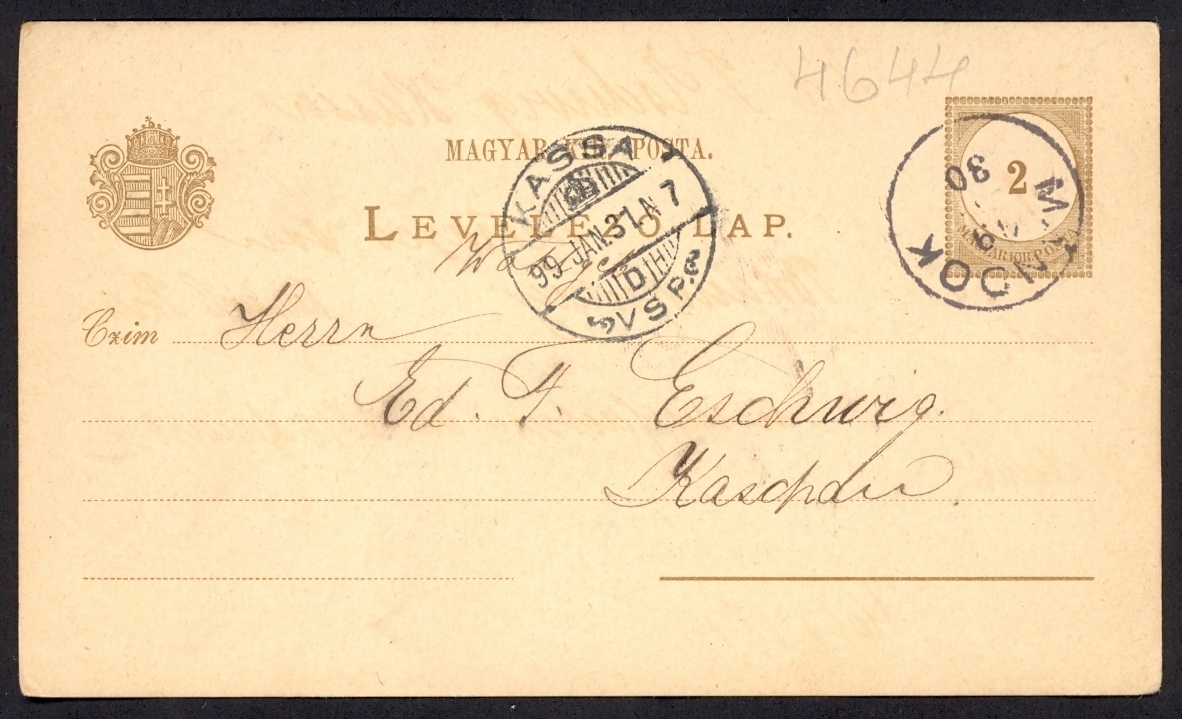 4644
MAGYAR KIR. POSTA.
LEVELEZŐ-LAP.
2
MAGYAR KIR. POSTA
KASSA
99 JAN. 31 N 7
D
VSP.
30
Czim
Herrn
Ed. F. Eschwig.
Kaschau.